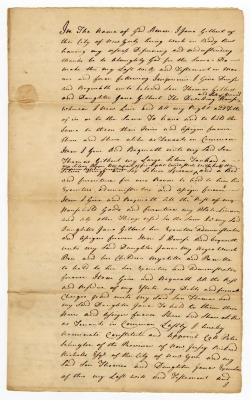 In The Name of God Amen. I Jane Gilbert of
the City of New York being weak in Body but
having my perfect Memory and Understanding
thanks be to Almighty God for the same Do
make this my Last will and Testament in Man
ner and form following Imprimis I Give Devise
and Bequeath unto beloved Son Thomas Gilbert
and Daughter Jane Gilbert The Dwelling House
wherein I now Live and all my Right and Title
of in or to the same To have and to hold the
same to them their Heirs and Assigns forever
Share and Share alike as Tenants in Common
Item I Give and Bequeath unto my said Son
Thomas Gilbert my Large Silver Tankard
and
furniture
Executors Administrators and Assigns forever
Item I Give and Bequeath all the Rest of my
Household Goods and furniture
and all other Things used in the same to my said
Daughter Jane Gilbert her Executors Administrators
and Assigns forever Item I Devise and Bequeath
unto my said Daughter Jane my Negro Wench
and her Children
to hold to her her Executors and Administrators
forever Item I Give and Bequeath all the Rest
and Residue of my Estate my Debts and funeral
Charges paid unto my said Son Thomas and
my said Daughter Jane to hold to them their
Heirs and Assigns forever Share and Share alike
as Tenants in Common Lastly I hereby
nominate Constitute and Appoint
of the Province of New Jersey Richard
Nicholls Esqr of the City of New York and my
said Son Thomas and Daughter Jane Executors
of this my Last will and Testament and